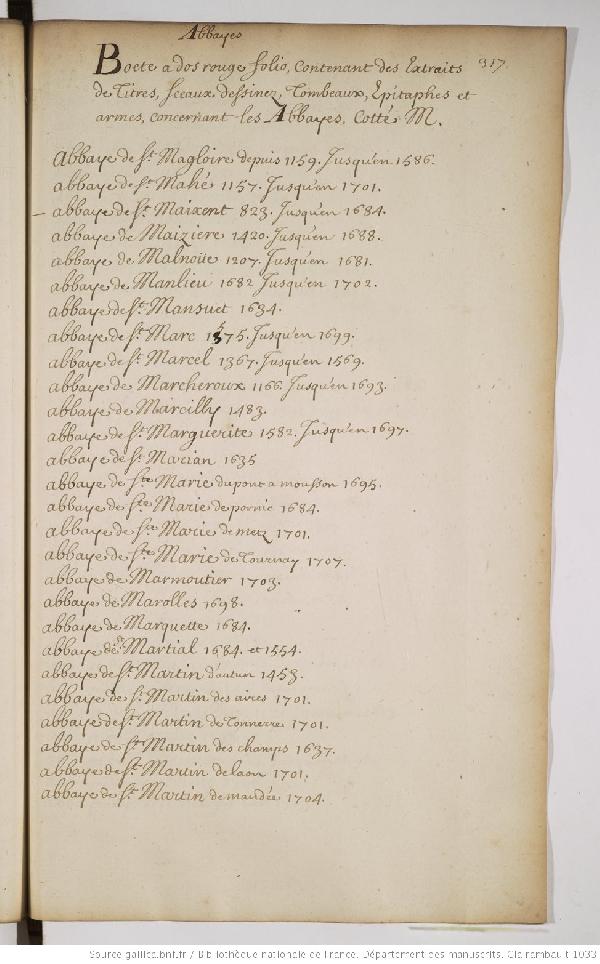 Abbayes
Boete a dos rouge folio, Contenant des Extraits
317
de Titres, sceaux dessinez, Tombeaux, Epitaphes et
armes, concernant les Abbayes, Cotté M.
abbaye de St. Magloire depuis 1159. Jusqu'en 1586.
abbaye de St. Mahé 1157. Jusqu'en 1701.
abbaye de St. Maixent 823. Jusqu'en 1684.
abbaye de Maiziere 1420. Jusqu'en 1688.
abbaye de Malnoüe 1207. Jusqu'en 1681.
abbaye de Manlieu 1682 Jusqu'en 1702.
abbaye de St. Mansuet 1634.
abbaye de St. Marc 1375. Jusqu'en 1699.
abbaye de St. Marcel 1367. Jusqu'en 1569.
abbaye de Marcheroux 1166. Jusqu'en 1693.
abbaye de Marcilly 1483.
abbaye de St. Marguerite 1582. Jusqu'en 1697.
abbaye de St. Marian 1635
abbaye de Ste. Marie du pont a mousson 1695.
abbaye de Ste. Marie de pornic 1684.
abbaye de Ste. Marie de metz 1701.
abbaye de Ste. Marie de Tournay 1707.
abbaye de Marmoutier 1703.
abbaye de Marolles 1698.
abbaye de Marquette 1684.
abbaye de St. Martial 1684. et 1554.
abbaye de St. Martin d'autun 1453.
abbaye de St. Martin des aires 1701.
abbaye de St. Martin de Tonnerre 1701.
abbaye de St. Martin des champs 1637.
abbaye de St. Martin de laon 1701.
abbaye de St. Martin de maudée 1704.
Source gallica.bnf.fr / Bibliothèque nationale de France. Département des manuscrits. Clairambault 1033